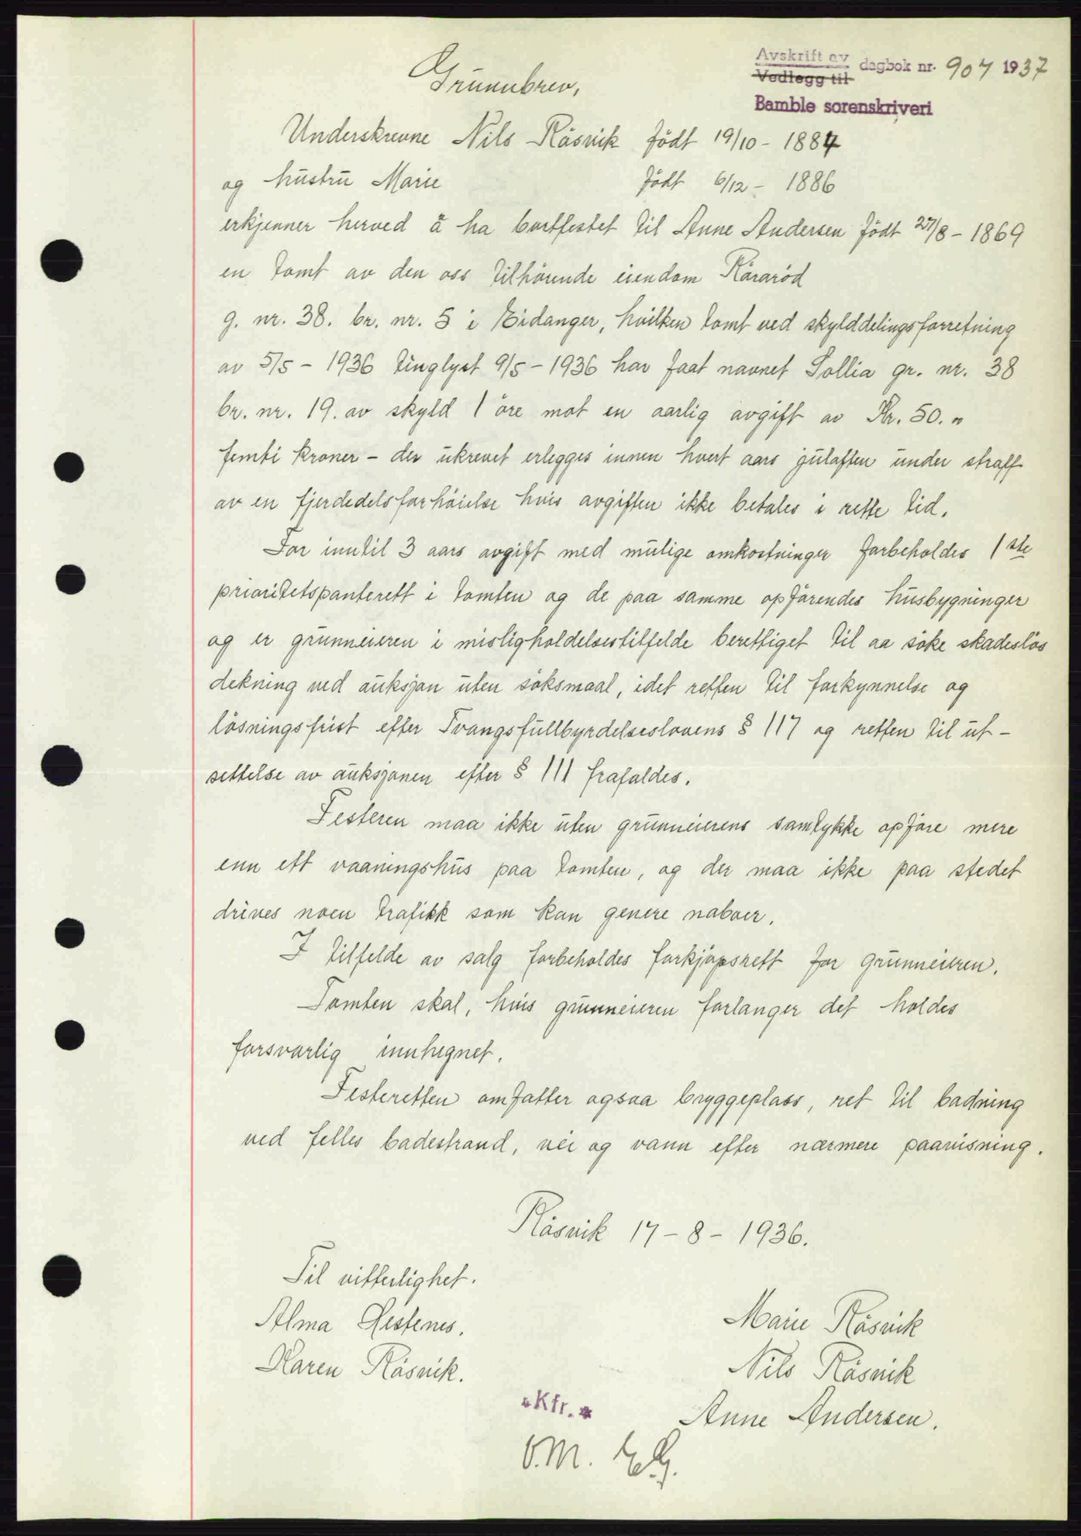 Avskrift av
Vedlegg til dagbok nr. 907 1937
Bamble sorenskriveri
Grunnbrev,
Underskrevne Nils Råsvik födt 19/10 - 1884
og hustru Marie födt 6/12 - 1886
erkjenner herved å ha bortfestet til Anne Andersen födt 27/8 - 1869
en tomt av den oss tilhörende eiendom Röraröd
g. nr. 38. br. nr. 5 i Eidanger, hvilken tomt ved skylddelingsforretning
av 5/5 - 1936 tinglyst 9/5 - 1936 har faat navnet Sollia gr. nr. 38
br. nr. 19. av skyld 1 öre mot en aarlig avgift av Kr. 50. "
femti kroner - der ukrevet erlegges innen hvert aars julaften under straff
av en fjerdedels forhöielse hvis avgiften ikke betales i rette tid.
For inntil 3 aars avgift med mulige omkostninger forbeholdes 1ste
prioritetspanterett i tomten og de paa samme opförendes husbygninger
og er grunneieren i misligholdelsestilfelde berettiget til aa söke skadeslös
dekning ved auksjon uten söksmaal, idet retten til forkynnelse og
lösningsfrist efter Tvangsfullbyrdelseslovens § 117 og retten til ut-
settelse av auksjonen efter § 111 frafaldes.
Festeren maa ikke uten grunneierens samtykke opföre mere
enn ett vaaningshus paa tomten, og der maa ikke paa stedet
drives noen trafikk som kan genere naboer.
I tilfelde av salg forbeholdes forkjöpsrett for grunneieren.
Tomten skal, hvis grunneieren forlanger det holdes
forsvarlig innhegnet.
Festeretten omfatter ogsaa bryggeplass, ret til badning
ved felles badestrand, vei og vann efter nærmere paavisning.
Råsvik 17 - 8 - 1936.
Til vitterlighet.
Alma Hestenes.
Karen Råsvik.
Marie Råsvik
Nils Råsvik
Anne Andersen.
* Kfr. *
O.M. E.G.